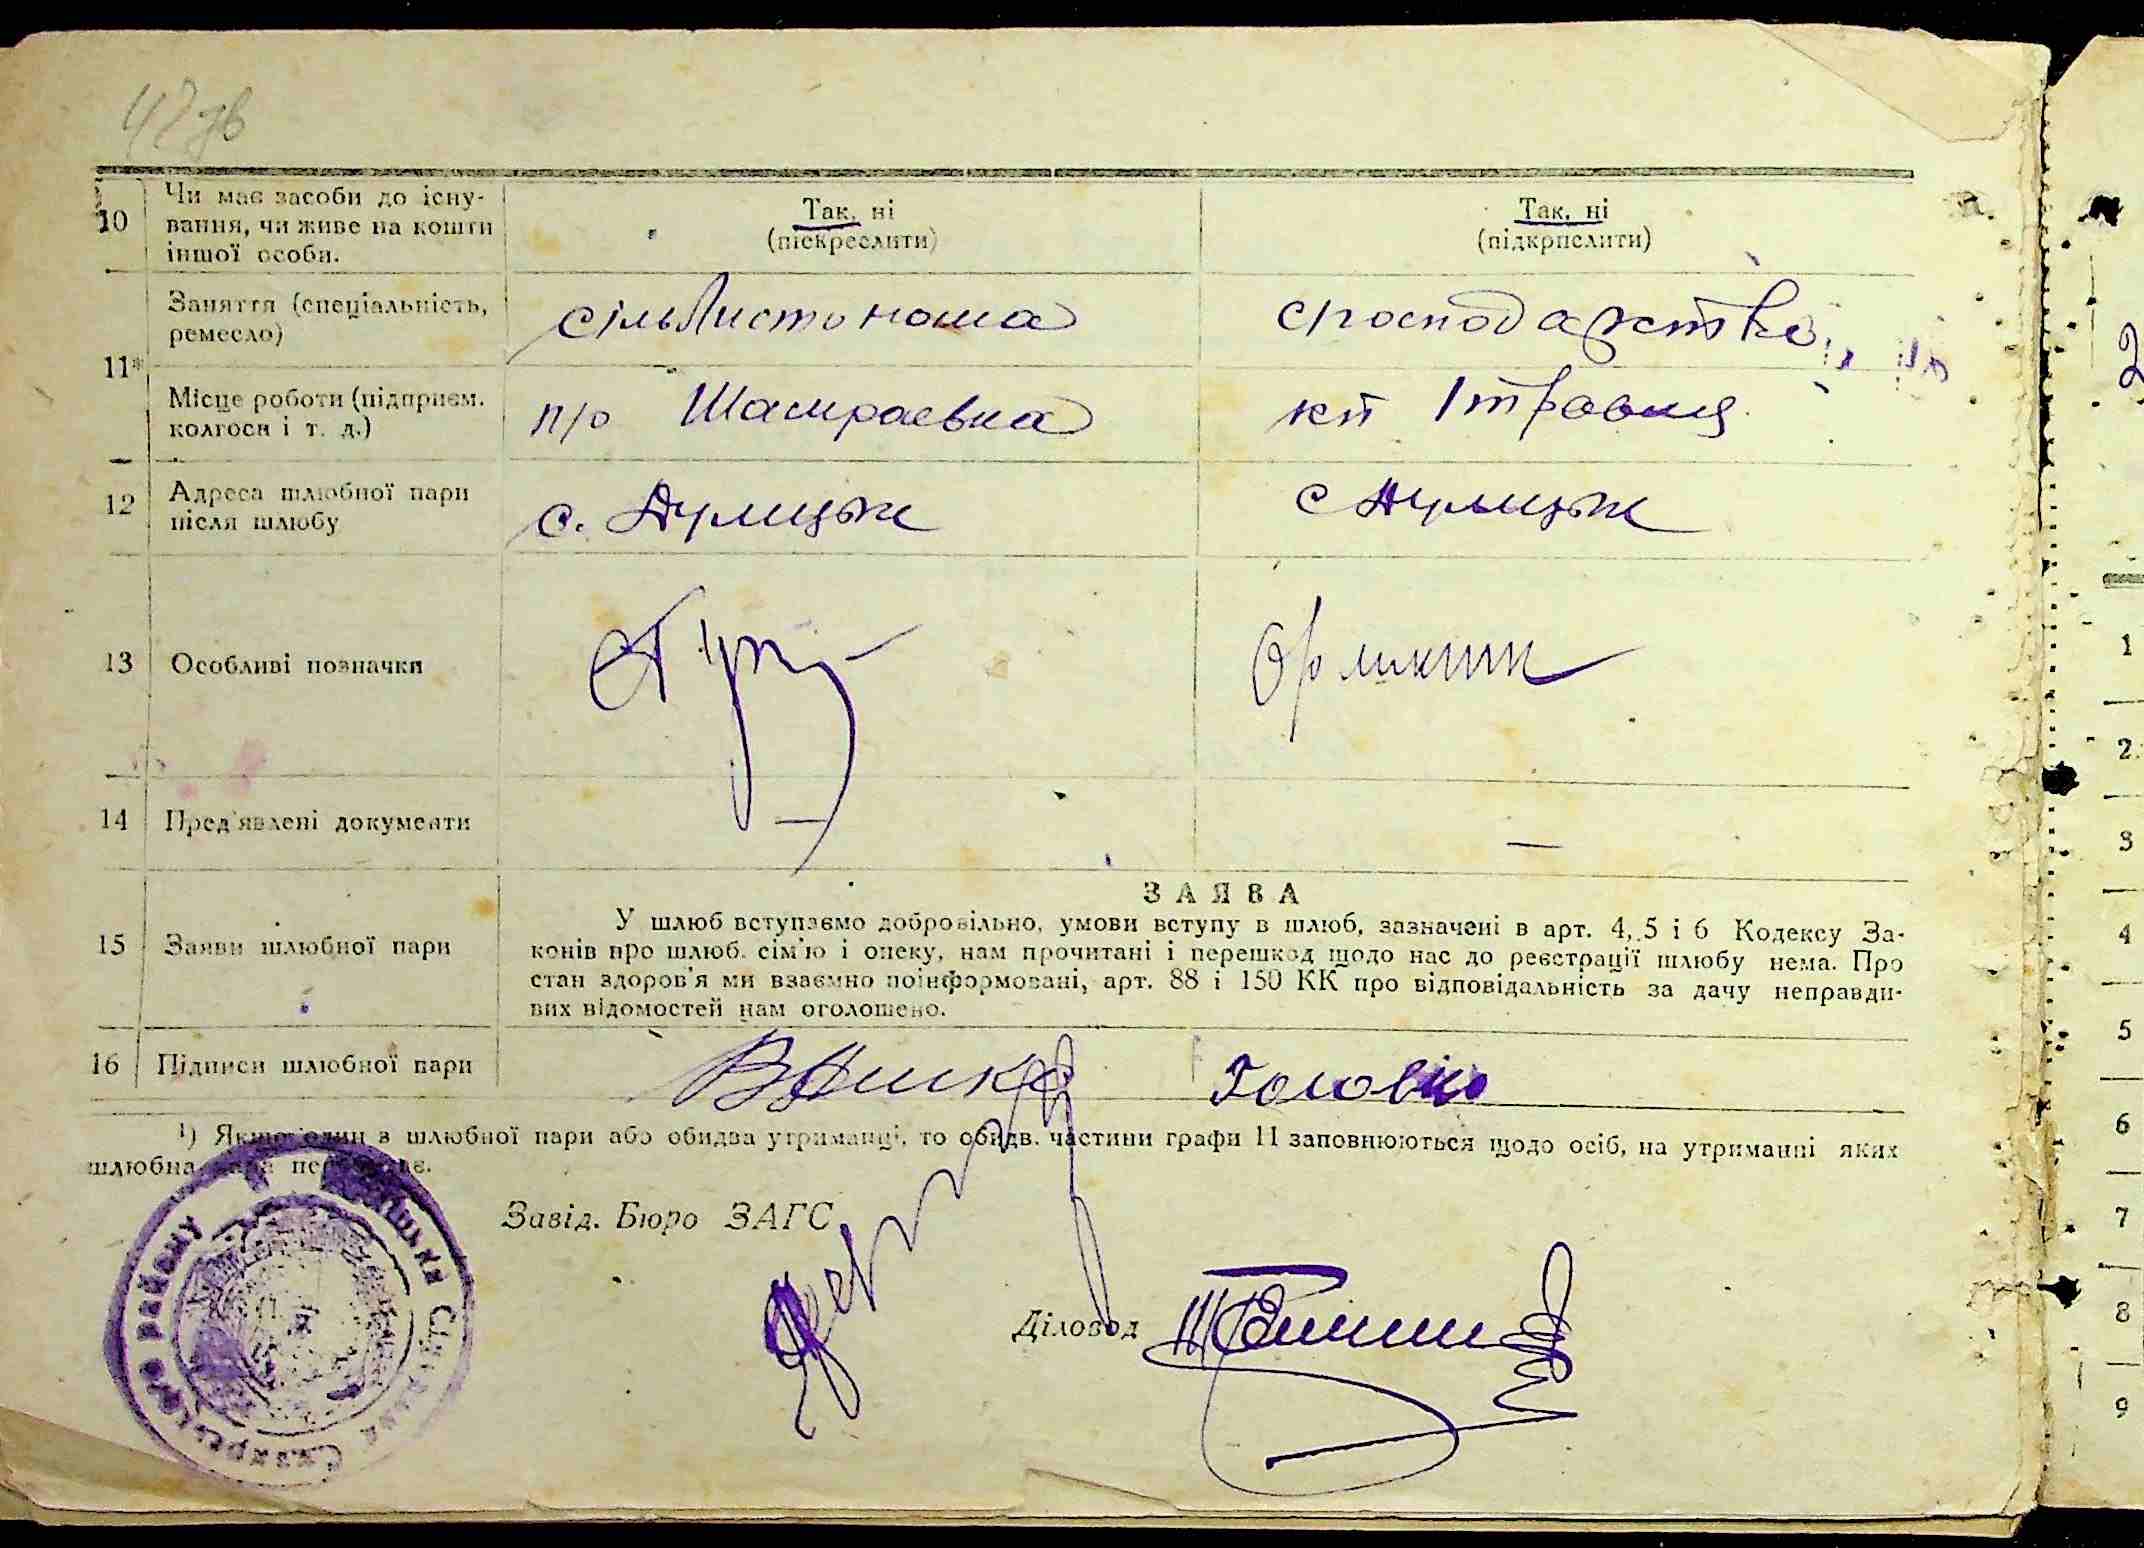 47 зв
10 Чи має засоби до існу-
вання, чи живе на кошти
іншої особи.
Так, ні
(піскреслити)
Так, ні
(підкрислити)
11* Заняття (спеціальність,
ремесло)
сільлистоноша
Місце роботи (підприєм.
колгосп і т. д.)
п/о Шамраевка
кп 1 травня
12 Адреса шлюбної пари
після шлюбу
с. Дулицьке
с Дулицьке
13 Особливі позначки
14 Пред'явлені документи
—
—
15 Заяви шлюбної пари
ЗАЯВА
У шлюб вступаємо добровільно, умови вступу в шлюб, зазначені в арт. 4, 5 і 6 Кодексу За-
конів про шлюб. сім'ю і опеку, нам прочитані і перешкод щодо нас до реєстрації шлюбу нема. Про
стан здоров'я ми взаємно поінформовані, арт. 88 і 150 КК про відповідальність за дачу неправди-
вих відомостей нам оголошено.
16 Підписи шлюбної пари
Головко
¹) Якщо один з шлюбної пари або обидва утриманці, то обидв. частини графи 11 заповнюються щодо осіб, на утриманні яких
шлюбна пара перебуває.
Завід. Бюро ЗАГС
Діловод
району
1
2
3
4
5
6
7
8
9